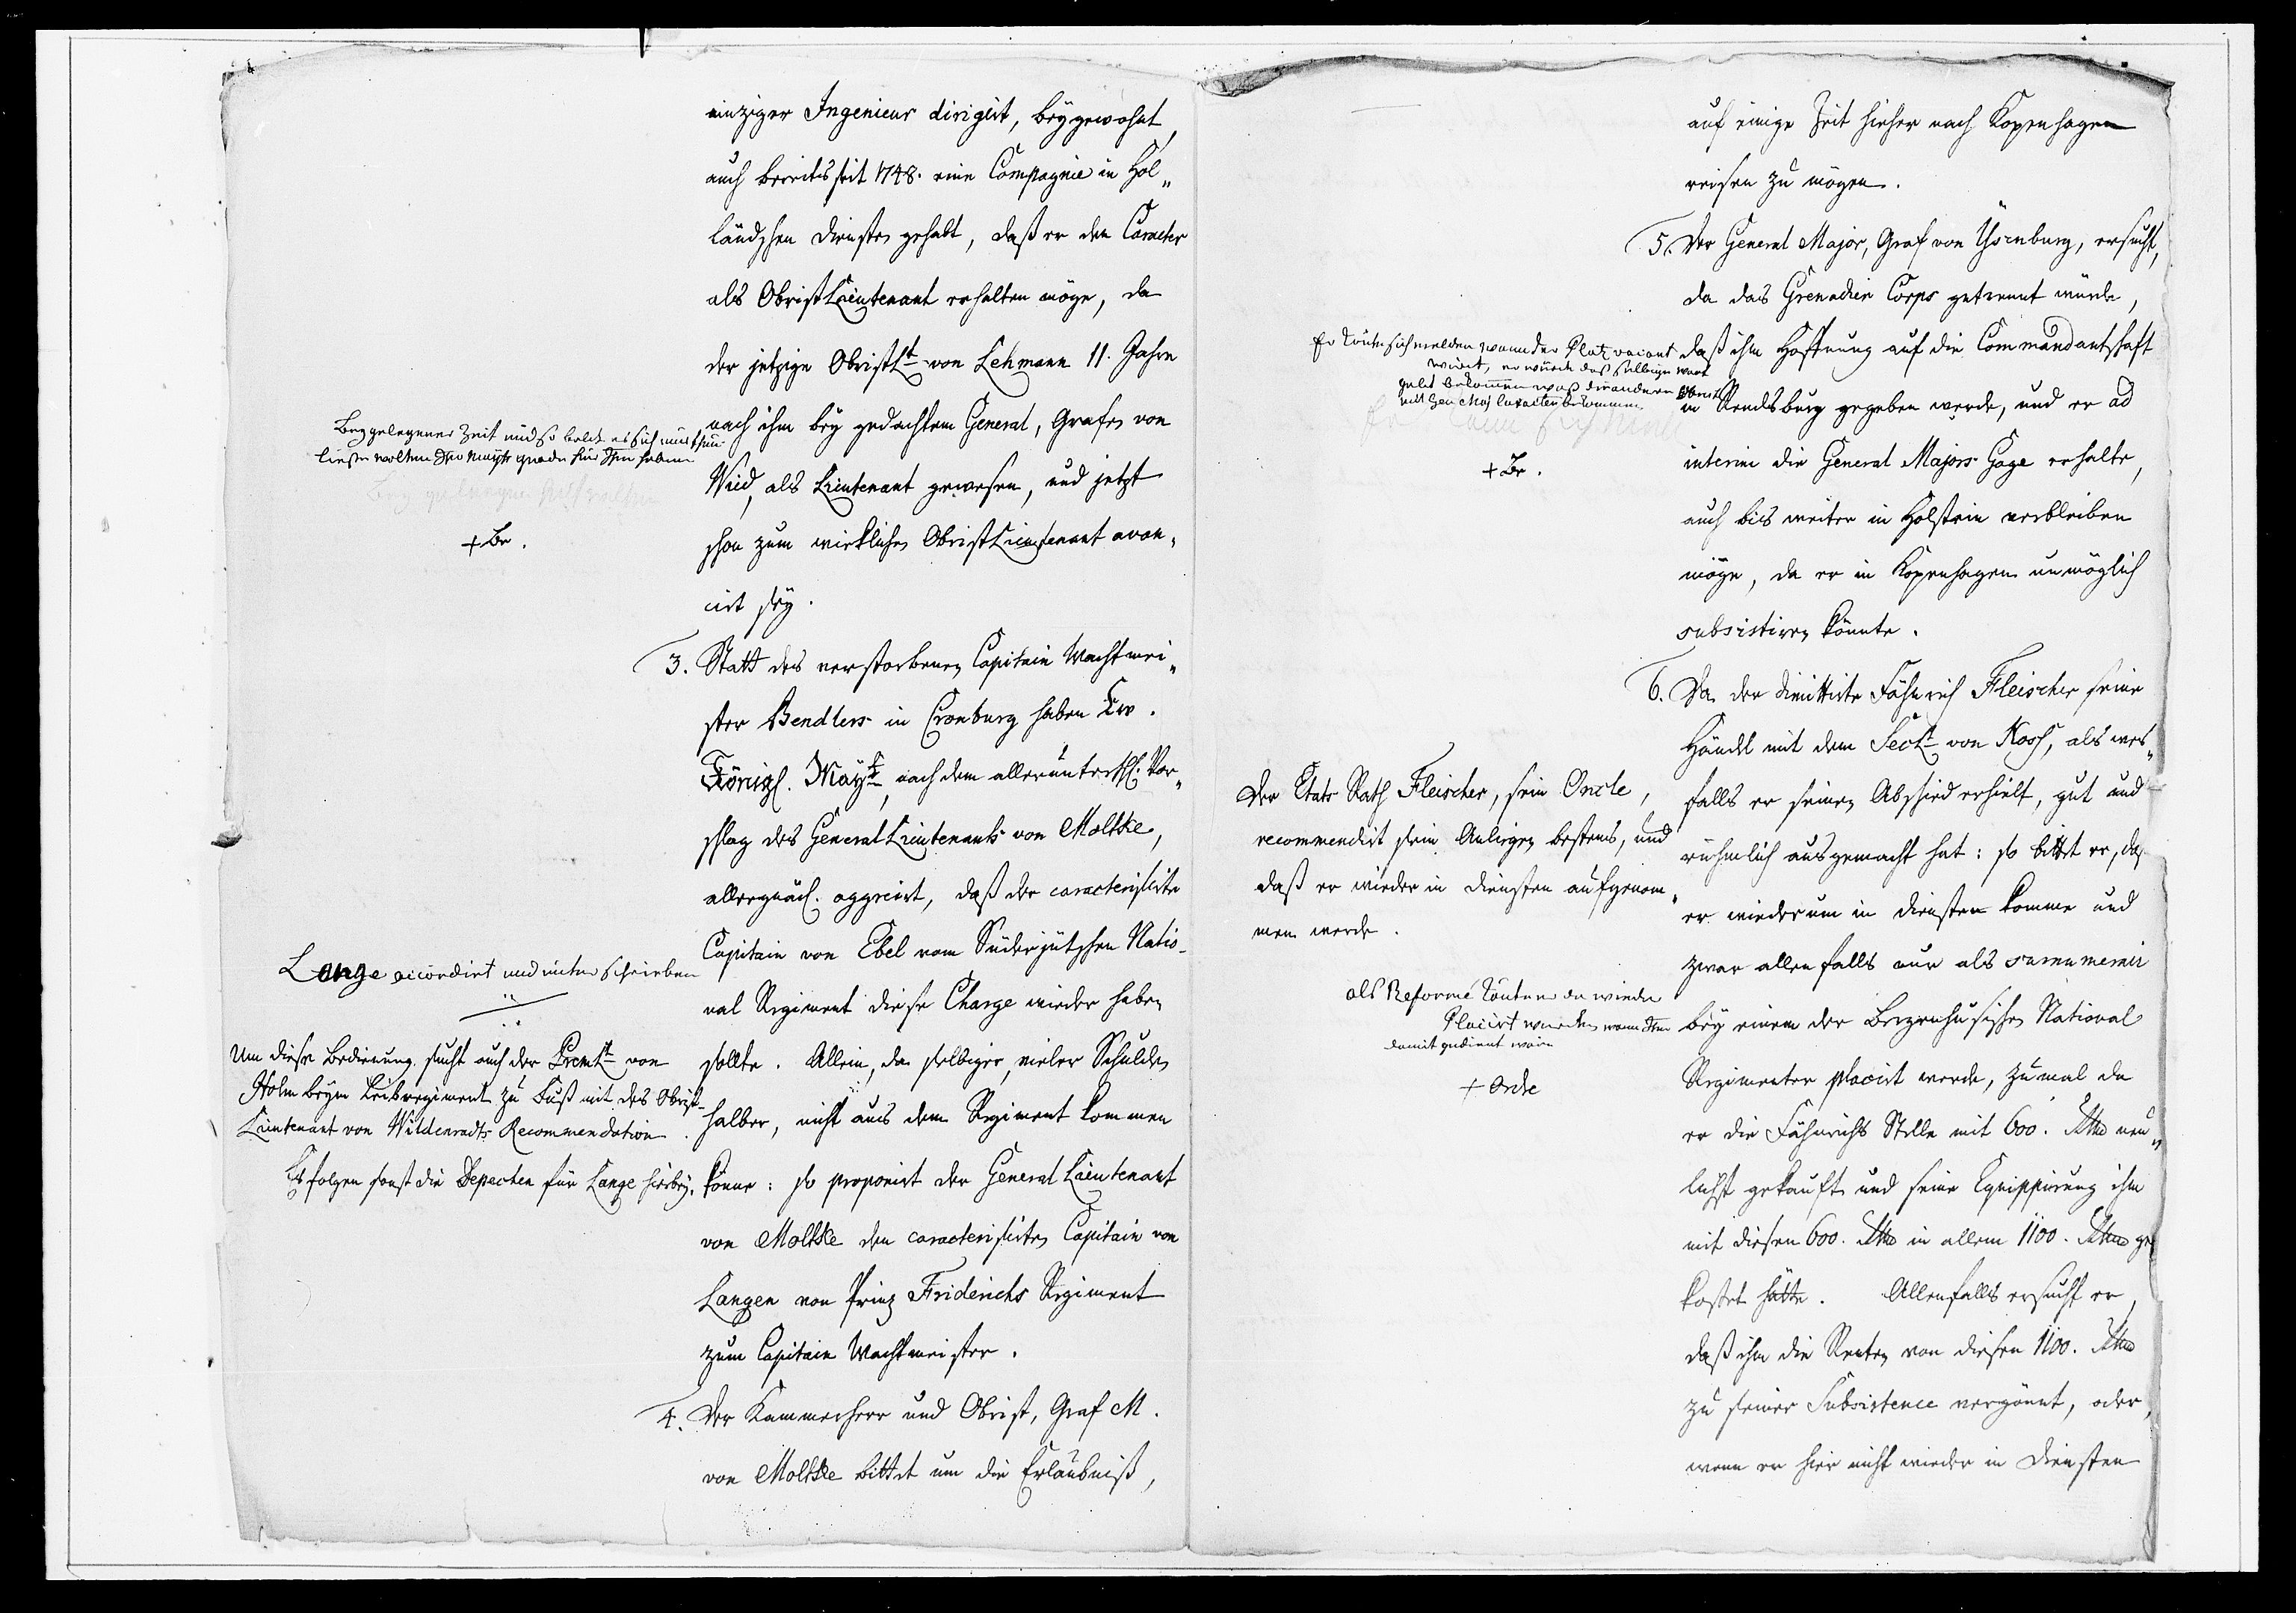 einziger Ingenieur dirigirt, beygewohnt,
auch bereits seit 1748. eine Compagnie in Hol„
ländschen Diensten gehabt, daß er den Caracter
als ObristLieutenant erhalten möge, da
der jetzige ObristLt von Lehmann 11. Jahre
nach ihm bey gedachtem General, Grafen von
Wied, als Lieutenant gewesen, und jetzt
schon zum wirklichen ObristLieutenant avan„
cirt sey.
Bey gelegener Zeit und so baldt es sich nur thun
ließe wolten Ihro Maytt gnade für Ihm haben
+ Br.
3. Statt des verstorbenen Capitain Wachtmei„
ster Bendlers in Cronburg haben Ew.
Königl. Maytt, nach dem allerunterth. Vor„
schlag des GeneralLieutenants von Moltke,
allergnäd. aggreirt, daß der caracterisirte
Capitain von Ebel vom Süderjütschen Natio„
nal Regiment diese Charge wieder haben
sollte. Allein, da selbiger, vieler Schulden
halber, nicht aus dem Regiment kommen
könne: so proponirt der General Lieutenant
von Moltke den caracterisirten Capitain von
Langen von Prinz Friderichs Regiment
zum Capitain Wachtmeister.
Lange accordirt und unterschrieben
Um diese Bedienung sucht auch der Premlt von
Holm beym Leibregiment zu Fuß mit des Obrist„
Lieutenant von Wildenradts Recommendation.
Es folgen sonst die Depechen für Lange hierbey.
4. Der Kammerherr und Obrist, Graf M.
von Moltke bittet um die Erlaubniß,
auf einige Zeit hieher nach Kopenhagen
reisen zu mögen.
5. Der General Major, Graf von Ysenburg, ersucht,
da das Grenadier Corps getrennt würde,
daß ihm Hoffnung auf die Commandantschaft
in Rendsburg gegeben werde, und er ad
interim die General Majors Gage erhalte,
auch bis weiter in Holstein verbleiben
möge, da er in Kopenhagen unmöglich
subsistiren könnte.
Er könte sich melden wann der Platz vacant
wirdt, er würde daß selbige wart
geldt bekommen waß die anderen Obrist
mit Gen Maj Caracter bekommen
+ Br.
6. Da der dimittirte Fähnrich Fleischer seine
Händel mit dem SecLt von Koss, als wes„
falls er seinen Abschied erhielt, gut und
rühmlich ausgemacht hat: so bittet er, daß
er wiederum in Diensten komme und
zwar allenfalls nur als
bey einem der Bergenhusischen National
Regimenter placirt werde, zumal da
er die Fähnrichs Stelle mit 600. Rthlr neu„
lichst gekauft und seine Equippirung ihm
mit diesen 600. Rthlr in allem 1100. Rthlr ge„
kostet hätte. Allenfalls ersucht er,
daß ihm die Renten von diesen 1100. Rthlr
zu seiner Subsistence vergönnt, oder,
wenn er hier nicht wieder in Diensten
Der Etats Rath Fleischer, sein Oncle,
recommendirt sein Anliegen bestens, und
daß er wieder in Diensten aufgenom„
men werde.
als Reformé könte er da wieder
Placirt werden wann Ihm
damit gedient wäre
+ Orde